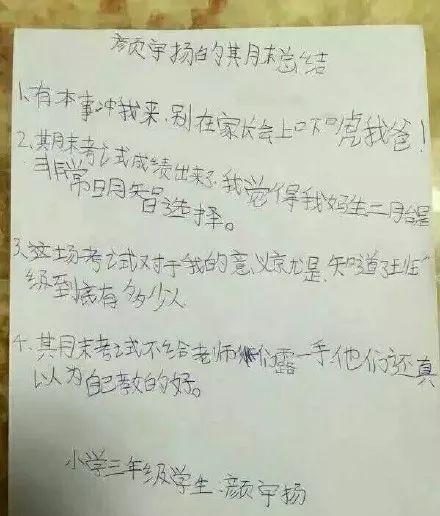 颜宇扬的期末总结
1、有本事冲我来.别在家长会上吓唬我爸！
2.期末考试成绩出来了.我觉得我妈生二胎是
非常明智选择。
3.这场考试对于我的意义就是.知道了班
级到底有多少人
4.期末考试不给老师们露一手.他们还真
以为自己教的好。
小学三年级学生.颜宇扬